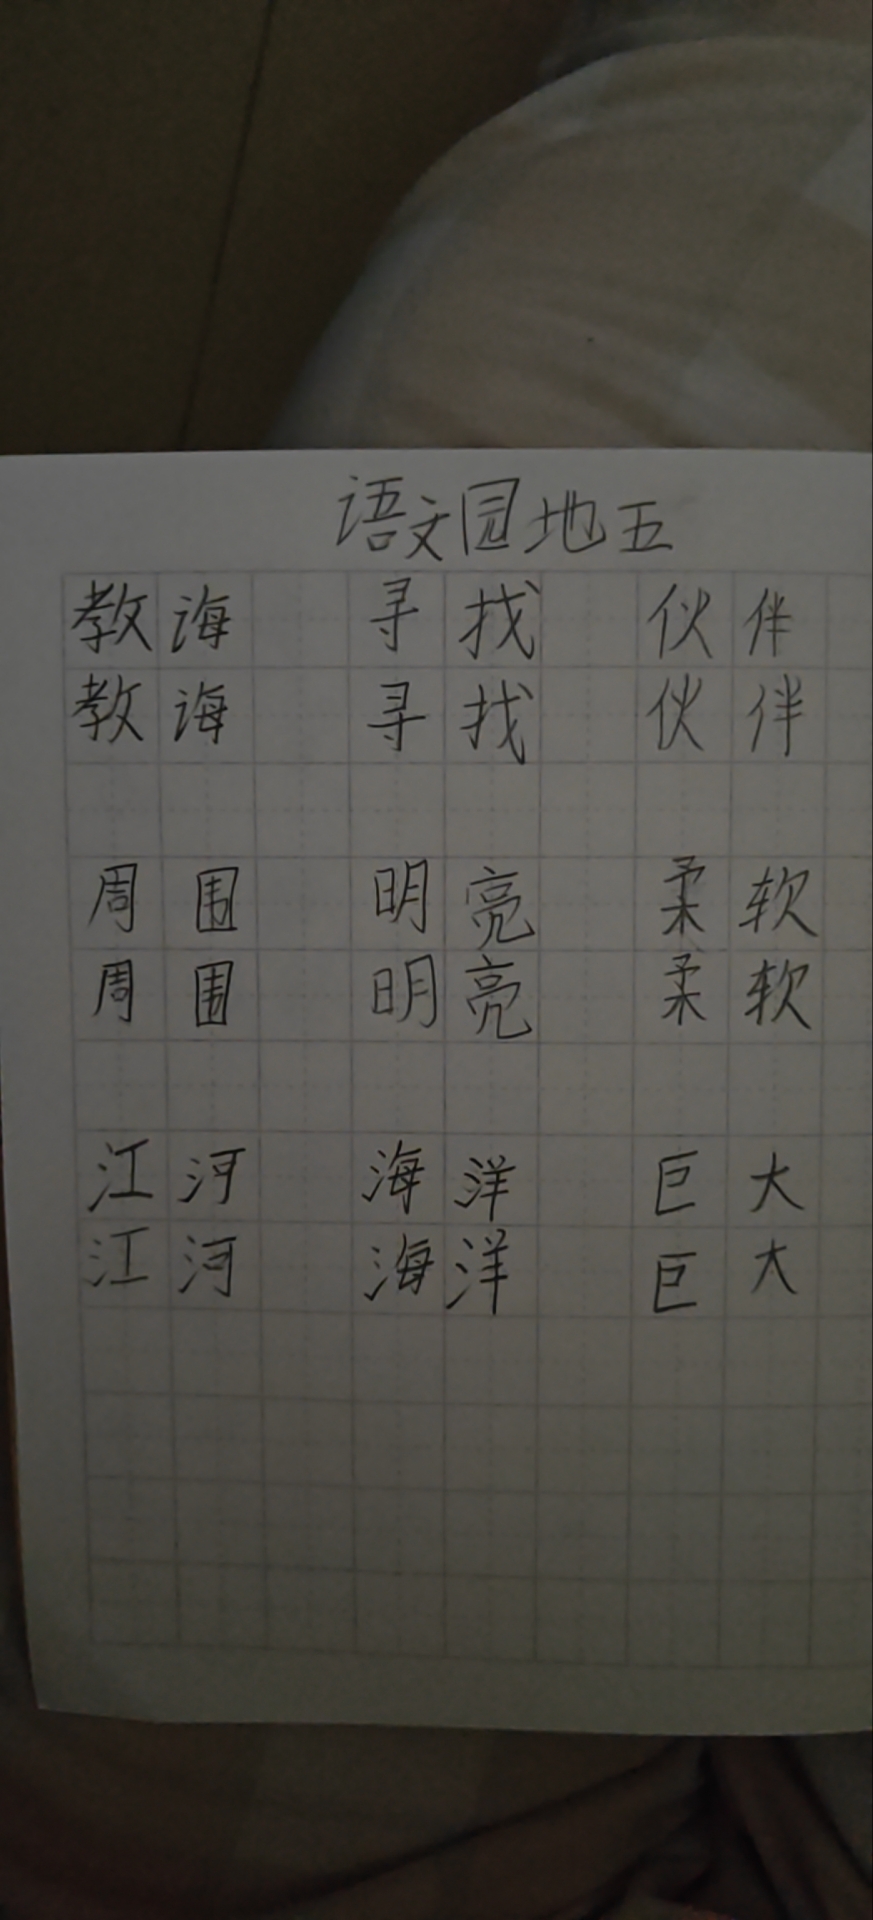 语文园地五
教诲 寻找 伙伴
教诲 寻找 伙伴
周围 明亮 柔软
周围 明亮 柔软
江河 海洋 巨大
江河 海洋 巨大